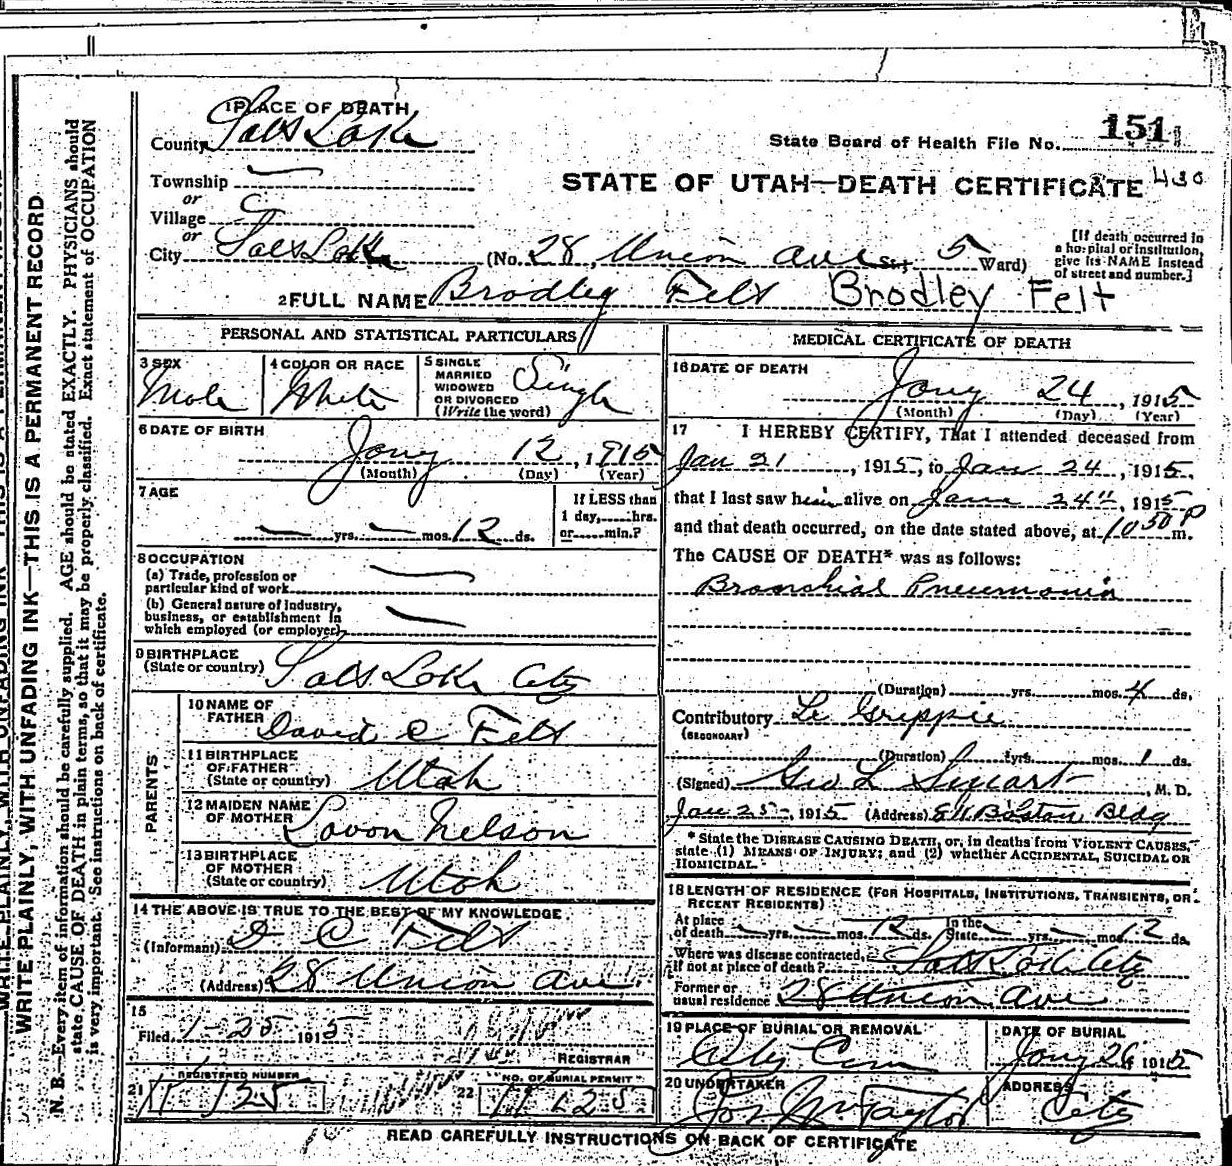 1 PLACE OF DEATH
County Salt Lake
State Board of Health File No. 151
Township —
or
Village
or
City Salt Lake (No. 28, Union Ave St.; 5 Ward)
STATE OF UTAH—DEATH CERTIFICATE 430
[If death occurred in
a hospital or institution,
give its NAME instead
of street and number.]
2 FULL NAME Brodley Felt Brodley Felt
PERSONAL AND STATISTICAL PARTICULARS
3 SEX
Male
4 COLOR OR RACE
White
5 SINGLE
MARRIED
WIDOWED
OR DIVORCED
(Write the word)
Single
6 DATE OF BIRTH
Jany 12, 1915
(Month) (Day) (Year)
7 AGE
— yrs. — mos. 12 ds.
If LESS than
1 day,......hrs.
or......min.?
8 OCCUPATION
(a) Trade, profession or
particular kind of work —
(b) General nature of industry,
business, or establishment in
which employed (or employer) —
9 BIRTHPLACE
(State or country) Salt Lake City
PARENTS
10 NAME OF
FATHER David C Felt
11 BIRTHPLACE
OF FATHER
(State or country) Utah
12 MAIDEN NAME
OF MOTHER Lavon Nelson
13 BIRTHPLACE
OF MOTHER
(State or country) Utah
14 THE ABOVE IS TRUE TO THE BEST OF MY KNOWLEDGE
(Informant) D C Felt
(Address) 28 Union Ave.
15
Filed 1-25 1915
REGISTRAR
21 REGISTERED NUMBER
125
22 NO. OF BURIAL PERMIT
125
MEDICAL CERTIFICATE OF DEATH
16 DATE OF DEATH
Jany 24, 1915
(Month) (Day) (Year)
17 I HEREBY CERTIFY, That I attended deceased from
Jan 21, 1915, to Jan 24, 1915,
that I last saw him alive on Jan 24", 1915
and that death occurred, on the date stated above, at 10 50 P m.
The CAUSE OF DEATH* was as follows:
Bronchial Pneumonia
(Duration) yrs. mos. 4 ds.
Contributory Le Grippie
(SECONDARY)
(Duration) yrs. mos. 1 ds.
(Signed) Geo L Smart, M. D.
Jan 25-, 1915 (Address) Boston Bldg
* State the DISEASE CAUSING DEATH, or, in deaths from VIOLENT CAUSES,
state (1) MEANS OF INJURY; and (2) whether ACCIDENTAL, SUICIDAL OR
HOMICIDAL.
18 LENGTH OF RESIDENCE (FOR HOSPITALS, INSTITUTIONS, TRANSIENTS, OR
RECENT RESIDENTS)
At place
of death — yrs. — mos. 12 ds. In the
State — yrs. — mos. 12 ds.
Where was disease contracted,
if not at place of death? Salt Lake City
Former or
usual residence 28 Union Ave
19 PLACE OF BURIAL OR REMOVAL
City Cem
DATE OF BURIAL
Jany 26 1915
20 UNDERTAKER
Jos. Wm Taylor
ADDRESS
City
READ CAREFULLY INSTRUCTIONS ON BACK OF CERTIFICATE
WRITE PLAINLY, WITH UNFADING INK—THIS IS A PERMANENT RECORD
N. B.—Every item of information should be carefully supplied. AGE should be stated EXACTLY. PHYSICIANS should
state CAUSE OF DEATH in plain terms, so that it may be properly classified. Exact statement of OCCUPATION
is very important. See instructions on back of certificate.